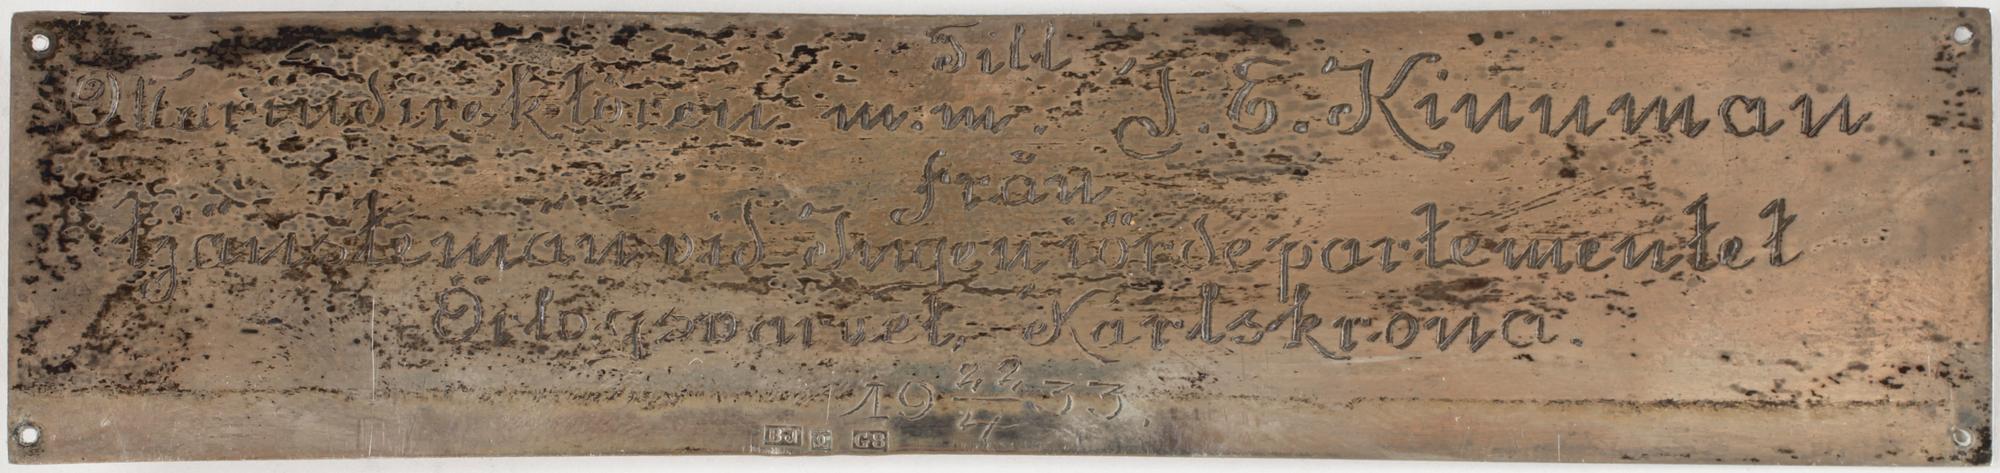 Till
Marindirektören m.m. J.E. Kinnman
från
tjänstemän vid Ingeniördepartementet
Örlogsvarvet, Karlskrona.
19 22/4 33.
BJ G8